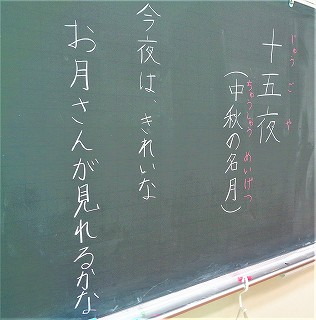 十五夜
じゅうごや
(中秋の名月)
ちゅうしゅう めいげつ
今夜は、きれいな
お月さんが見れるかな